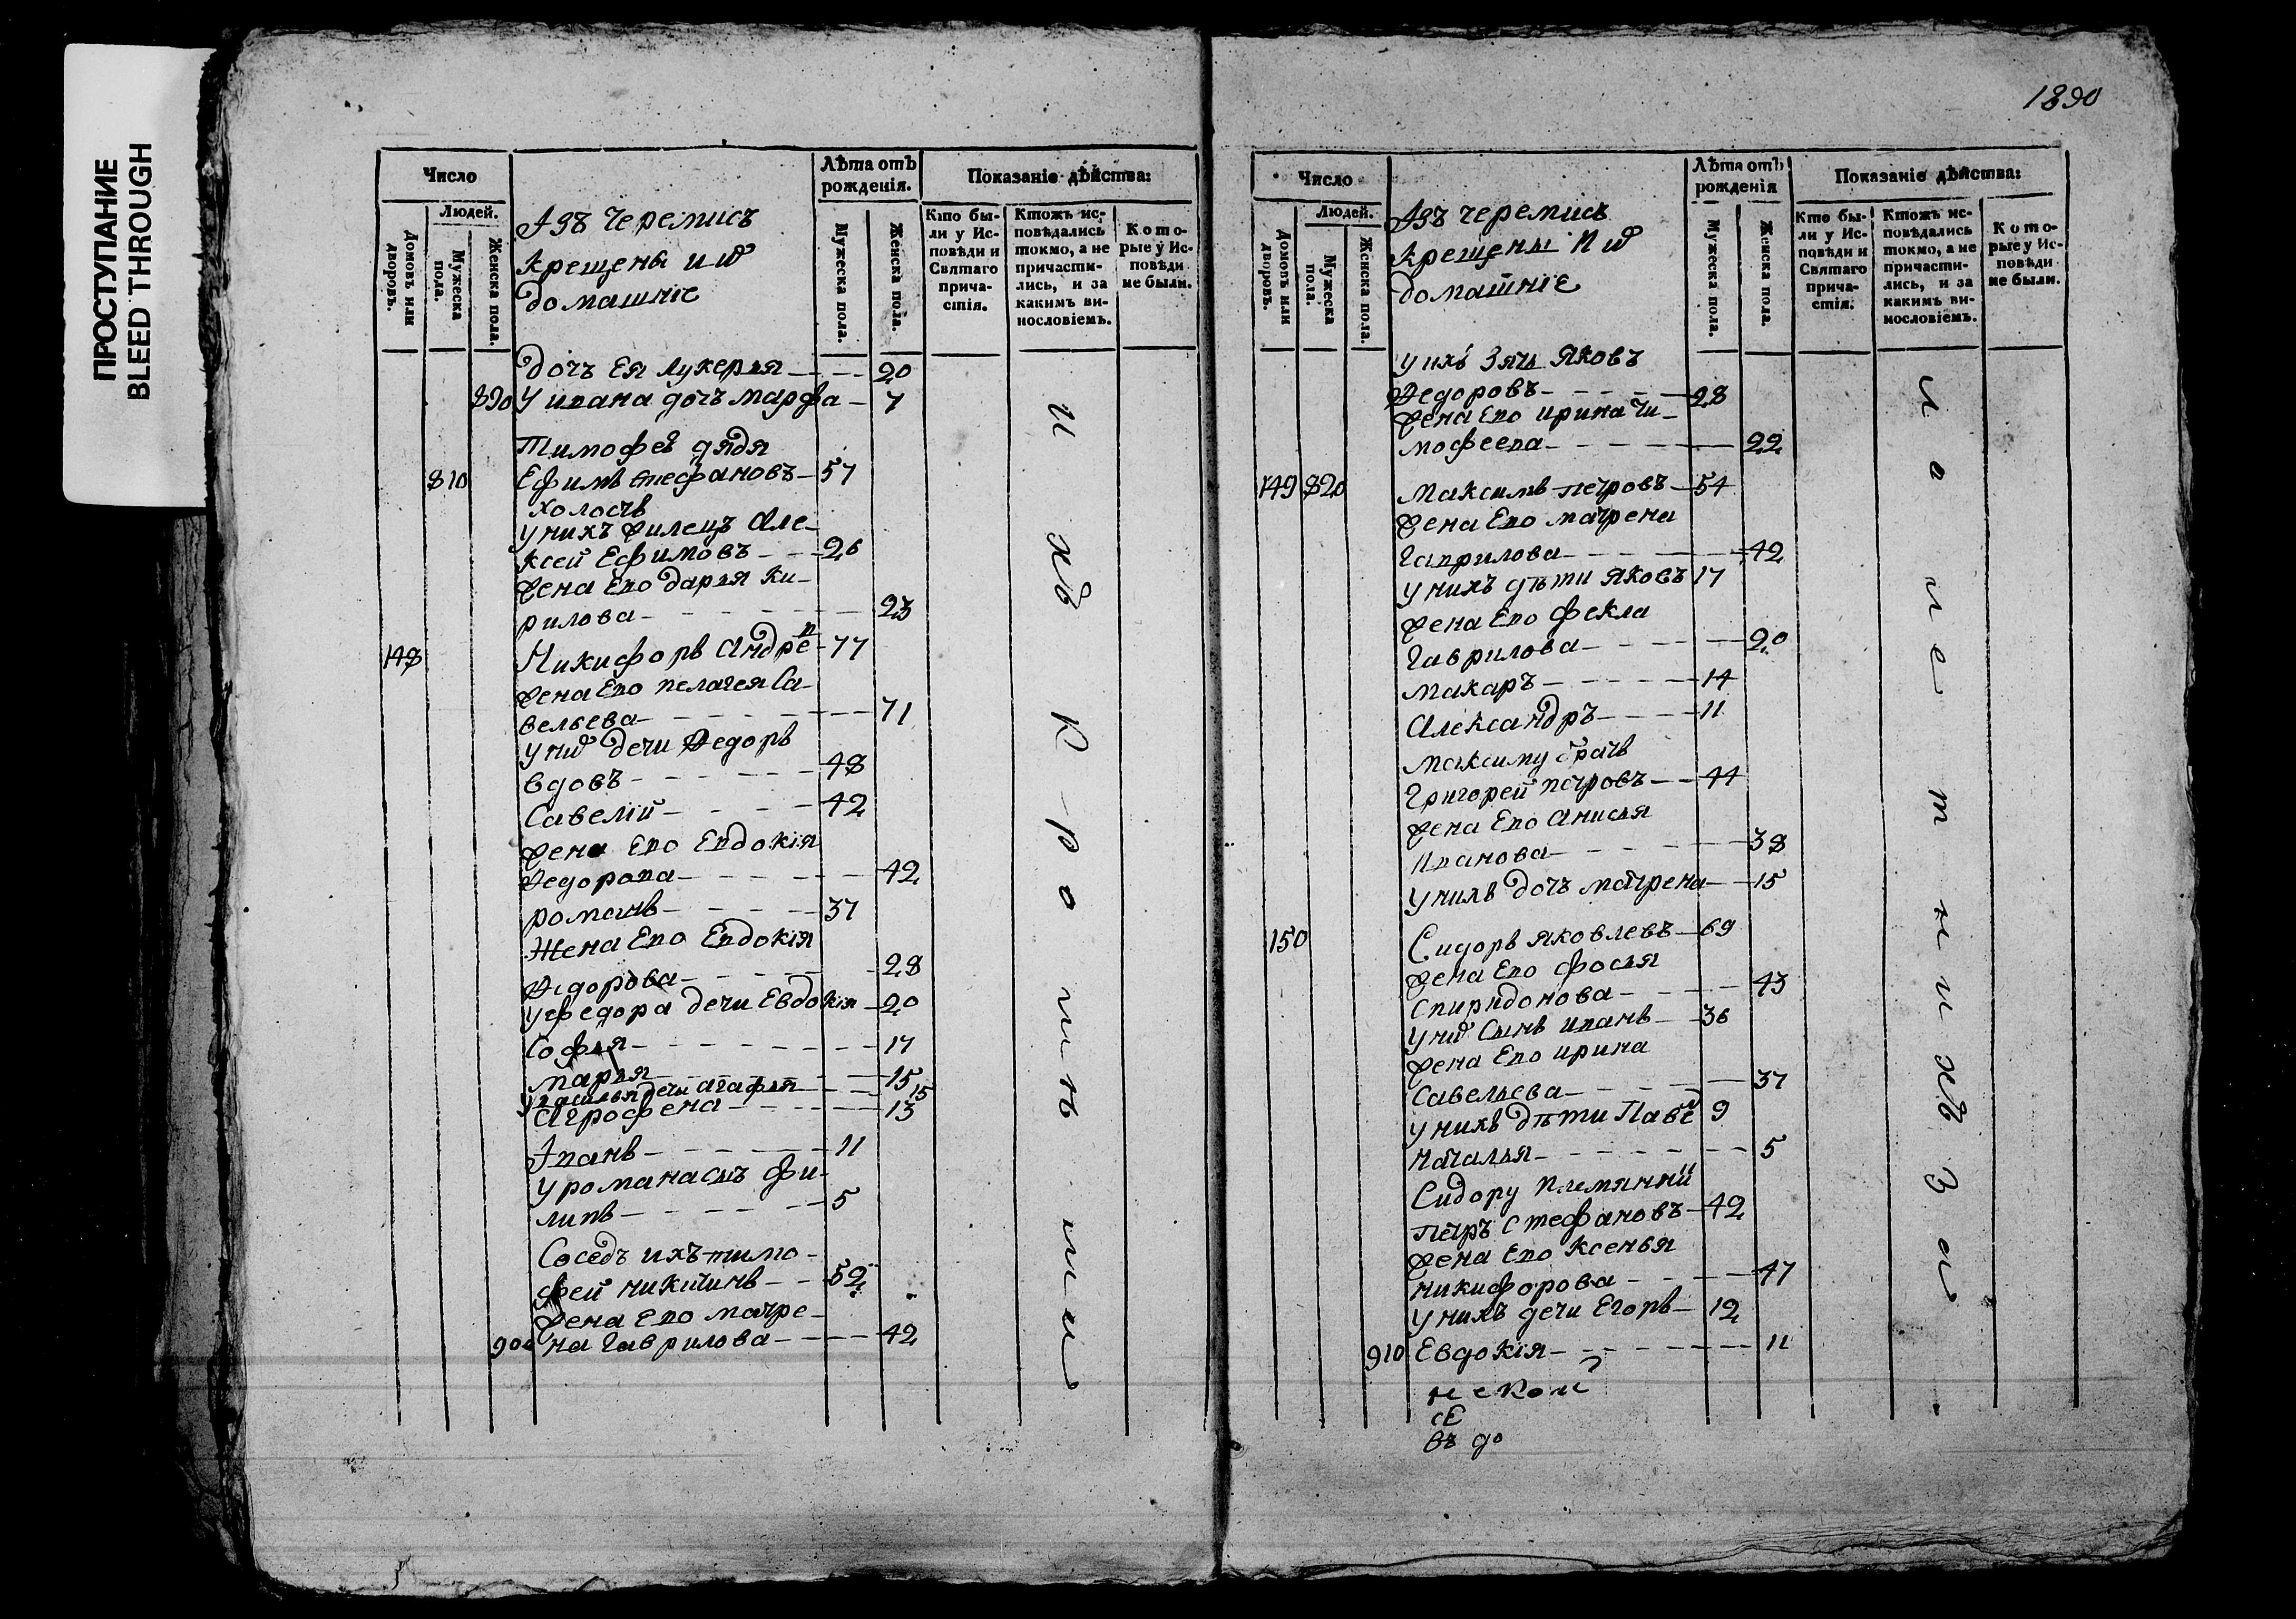 ПРОСТУПАНИЕ
BLEED THROUGH
Число
Лѣта отъ рожденія.
Показаніе дѣйства:
Домовъ или дворовъ.
Людей.
Мужеска пола.
Женска пола.
Изъ черемисъ
крещены и их
домашніе
Мужеска пола.
Женска пола.
Кто бы-
ли у Ис-
повѣди и
Святаго
прича-
стія.
Ктожъ ис-
повѣдались
токмо, а не
причасти-
лись, и за
какимъ ви-
нословіемъ.
Кото-
рые у Ис-
повѣди
не были.
дочь Ея лукерья 20
890 У ивана дочь марфа 7
Тимофею дядя
810 Ефимъ стефановъ 57
холостъ
у нихъ жилецъ Але-
ксей Ефимовъ 26
жена Ево дарья ки-
рилова 23
148 Никифоръ Андрев 77
жена Ево пелагея Са-
вельева 71
у них дети Федоръ
вдовъ 48
Савелій 42
жена Ево Евдокія
Федорова 42
романъ 37
Жена Ево Евдокія
Федорова 28
у федора дети Евдокія 20
Софья 17
марья 15
у савелья дети агафья 15
Агрофена 13
Іванъ 11
у романа сынъ фи-
липъ 5
Соседъ ихъ тимо-
фей никитинъ 52
жена Ево матре-
900 на гаврилова 42
1890
Число
Лѣта отъ рожденія
Показаніе дѣйства:
Домовъ или дворовъ.
Людей.
Мужеска пола.
Женска пола.
Изъ черемисъ
крещены и их
домашніе
Мужеска пола.
Женска пола.
Кто бы-
ли у Ис-
повѣди и
Святаго
прича-
стія.
Ктожъ ис-
повѣдались
токмо, а не
причасти-
лись, и за
какимъ ви-
нословіемъ.
Кото-
рые у Ис-
повѣди
не были.
у ихъ зять Яковъ
Федоровъ 28
жена Ево ирина ти-
мофеева 22
149 820 Максимъ петровъ 54
жена Ево матрена
гаврилова 42
у нихъ дѣти Яковъ 17
жена Ево фекла
гаврилова 20
макаръ 14
Александръ 11
максиму братъ
григорей петровъ 44
жена Ево Анисья
Иванова 38
у нихъ дочь матрена 15
150 Сидоръ Яковлевъ 69
жена Ево фосья
Спиридонова 43
у них Сынъ иванъ 36
жена Ево ирина
Савельева 37
у нихъ дѣти Павел 9
наталья 5
Сидору племянник
петръ Стефановъ 42
жена Ево Ксенья
никифорова 47
у нихъ дети Егоръ 12
910 Евдокія 11
въ до